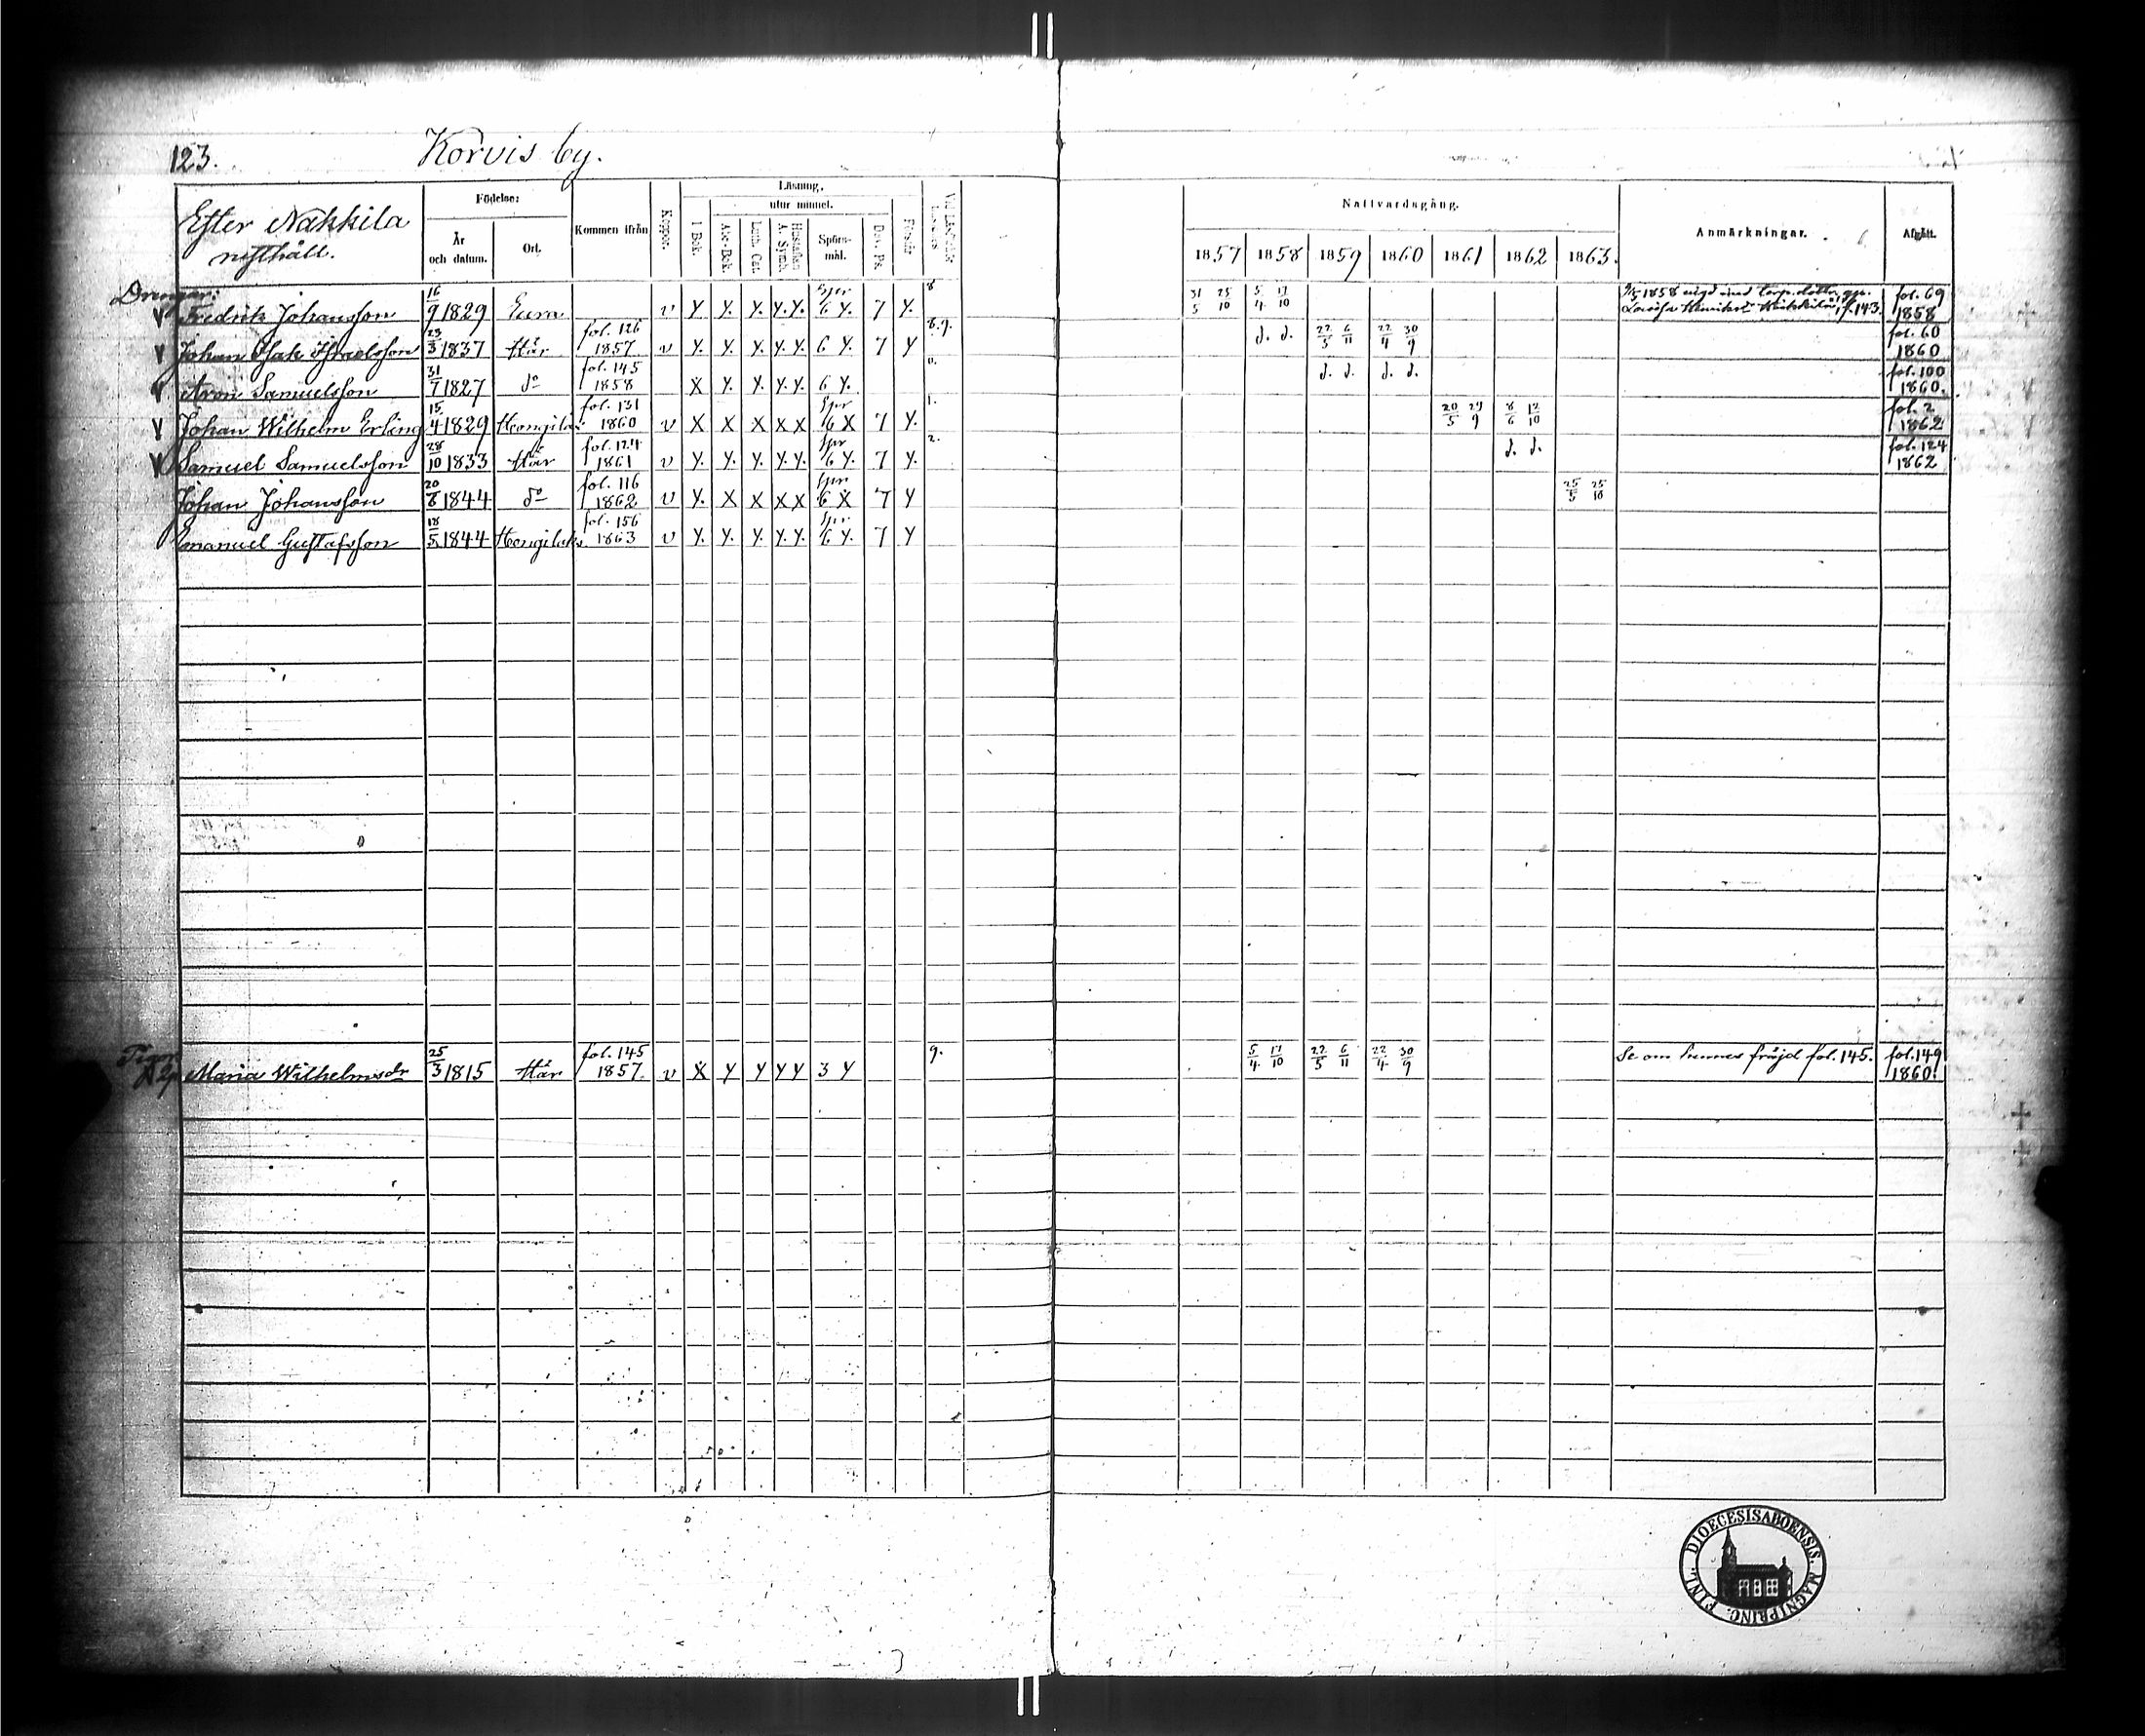 123. Korvis by.
Efter Nakkila
rusthåll.
Födelse:
År
och datum.
Ort.
Kommen ifrån
Koppor.
Läsning,
utur minnet.
I Bok.
Abc-Bok.
Luth. Cat.
Hustaflan
A. Symb.
Spörs-
mål.
Dav. Ps.
Förstår
Nattvardsgång.
1857 1858 1859 1860 1861 1862 1863.
Anmärkningar.
Afgått.
Drengar:
V Fredrik Johansson 16/9 1829 Eura v Y. Y. Y. Y. Y. Spr 6 Y. 7 Y. 8 31/5 25/10 5/4 17/10 1858 fol. 69 1858
V Johan Isak Israelsson 23/3 1837 Här fol. 126 1857 v Y. Y. Y. Y. Y. 6 Y. 7 Y 8.9. d. d. 22/5 6/11 22/4 30/9 fol. 60 1860
V Aron Samuelsson 31/7 1827 do fol. 145 1858 X Y. Y. Y. Y. 6 Y. 0. d. d. d. d. fol. 100 1860.
V Johan Wilhelm Erling 15/4 1829 fol. 131 1860 v X X X X X Spr 6 X 7 Y. 1. 20/5 29/9 8/6 12/10 fol. 2 1862
V Samuel Samuelsson 28/10 1833 Här fol. 124 1861 v Y. Y. Y. Y. Y. Spr 6 Y. 7 Y. 2. d. d. fol. 124 1862
Johan Johansson 20/8 1844 do fol. 116 1862 v Y. X X X X Spr 6 X 7 Y 25/5 25/10
Emanuel Gustafsson 18/5 1844 fol. 156 1863 v Y. Y. Y. Y. Y. Spr 6 Y. 7 Y
Maria Wilhelmsdr 25/3 1815 Här fol. 145 1857. v X Y Y Y Y 3 Y 9. 5/4 17/10 22/5 6/11 22/4 30/9 Se om hennes fräjd fol. 145. fol. 149 1860.
DIOECESIS ABOENSIS. MAGNI PRINC. FINL.